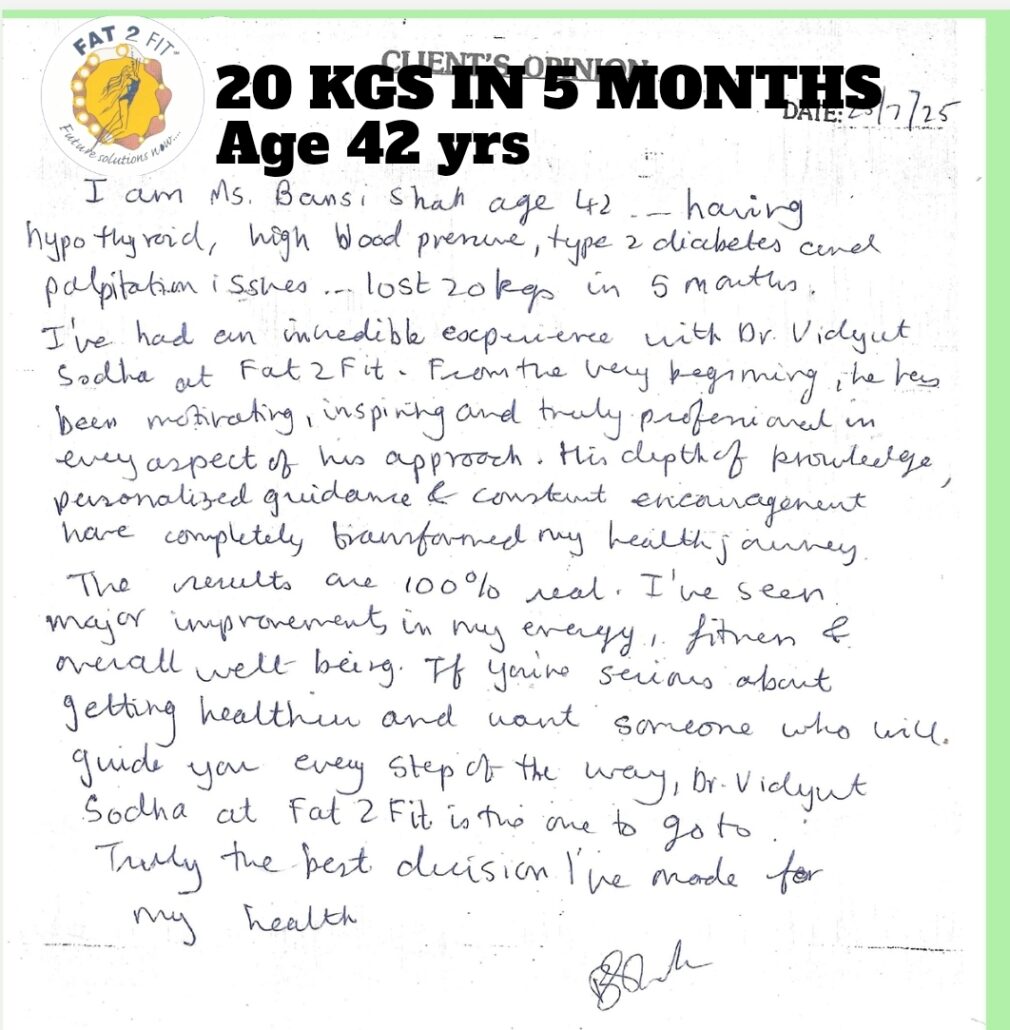 FAT 2 FIT
Future solutions now...
CLIENT'S OPINION
20 KGS IN 5 MONTHS
DATE: /7/25
Age 42 yrs
I am Ms. Bansi Shah age 42 -- having
hypothyroid, high blood pressure, type 2 diabetes and
palpitation issues -- lost 20kgs in 5 months.
I've had an incredible experience with Dr. Vidyut
Sodha at Fat 2 Fit. From the very beginning, he has
been motivating, inspiring and truly professional in
every aspect of his approach. His depth of knowledge,
personalized guidance & constant encouragement
have completely transformed my health journey.
The results are 100% real. I've seen
major improvements in my energy, fitness &
overall well being. If you're serious about
getting healthier and want someone who will
guide you every step of the way, Dr. Vidyut
Sodha at Fat 2 Fit is the one to go to.
Truly the best decision I've made for
my health